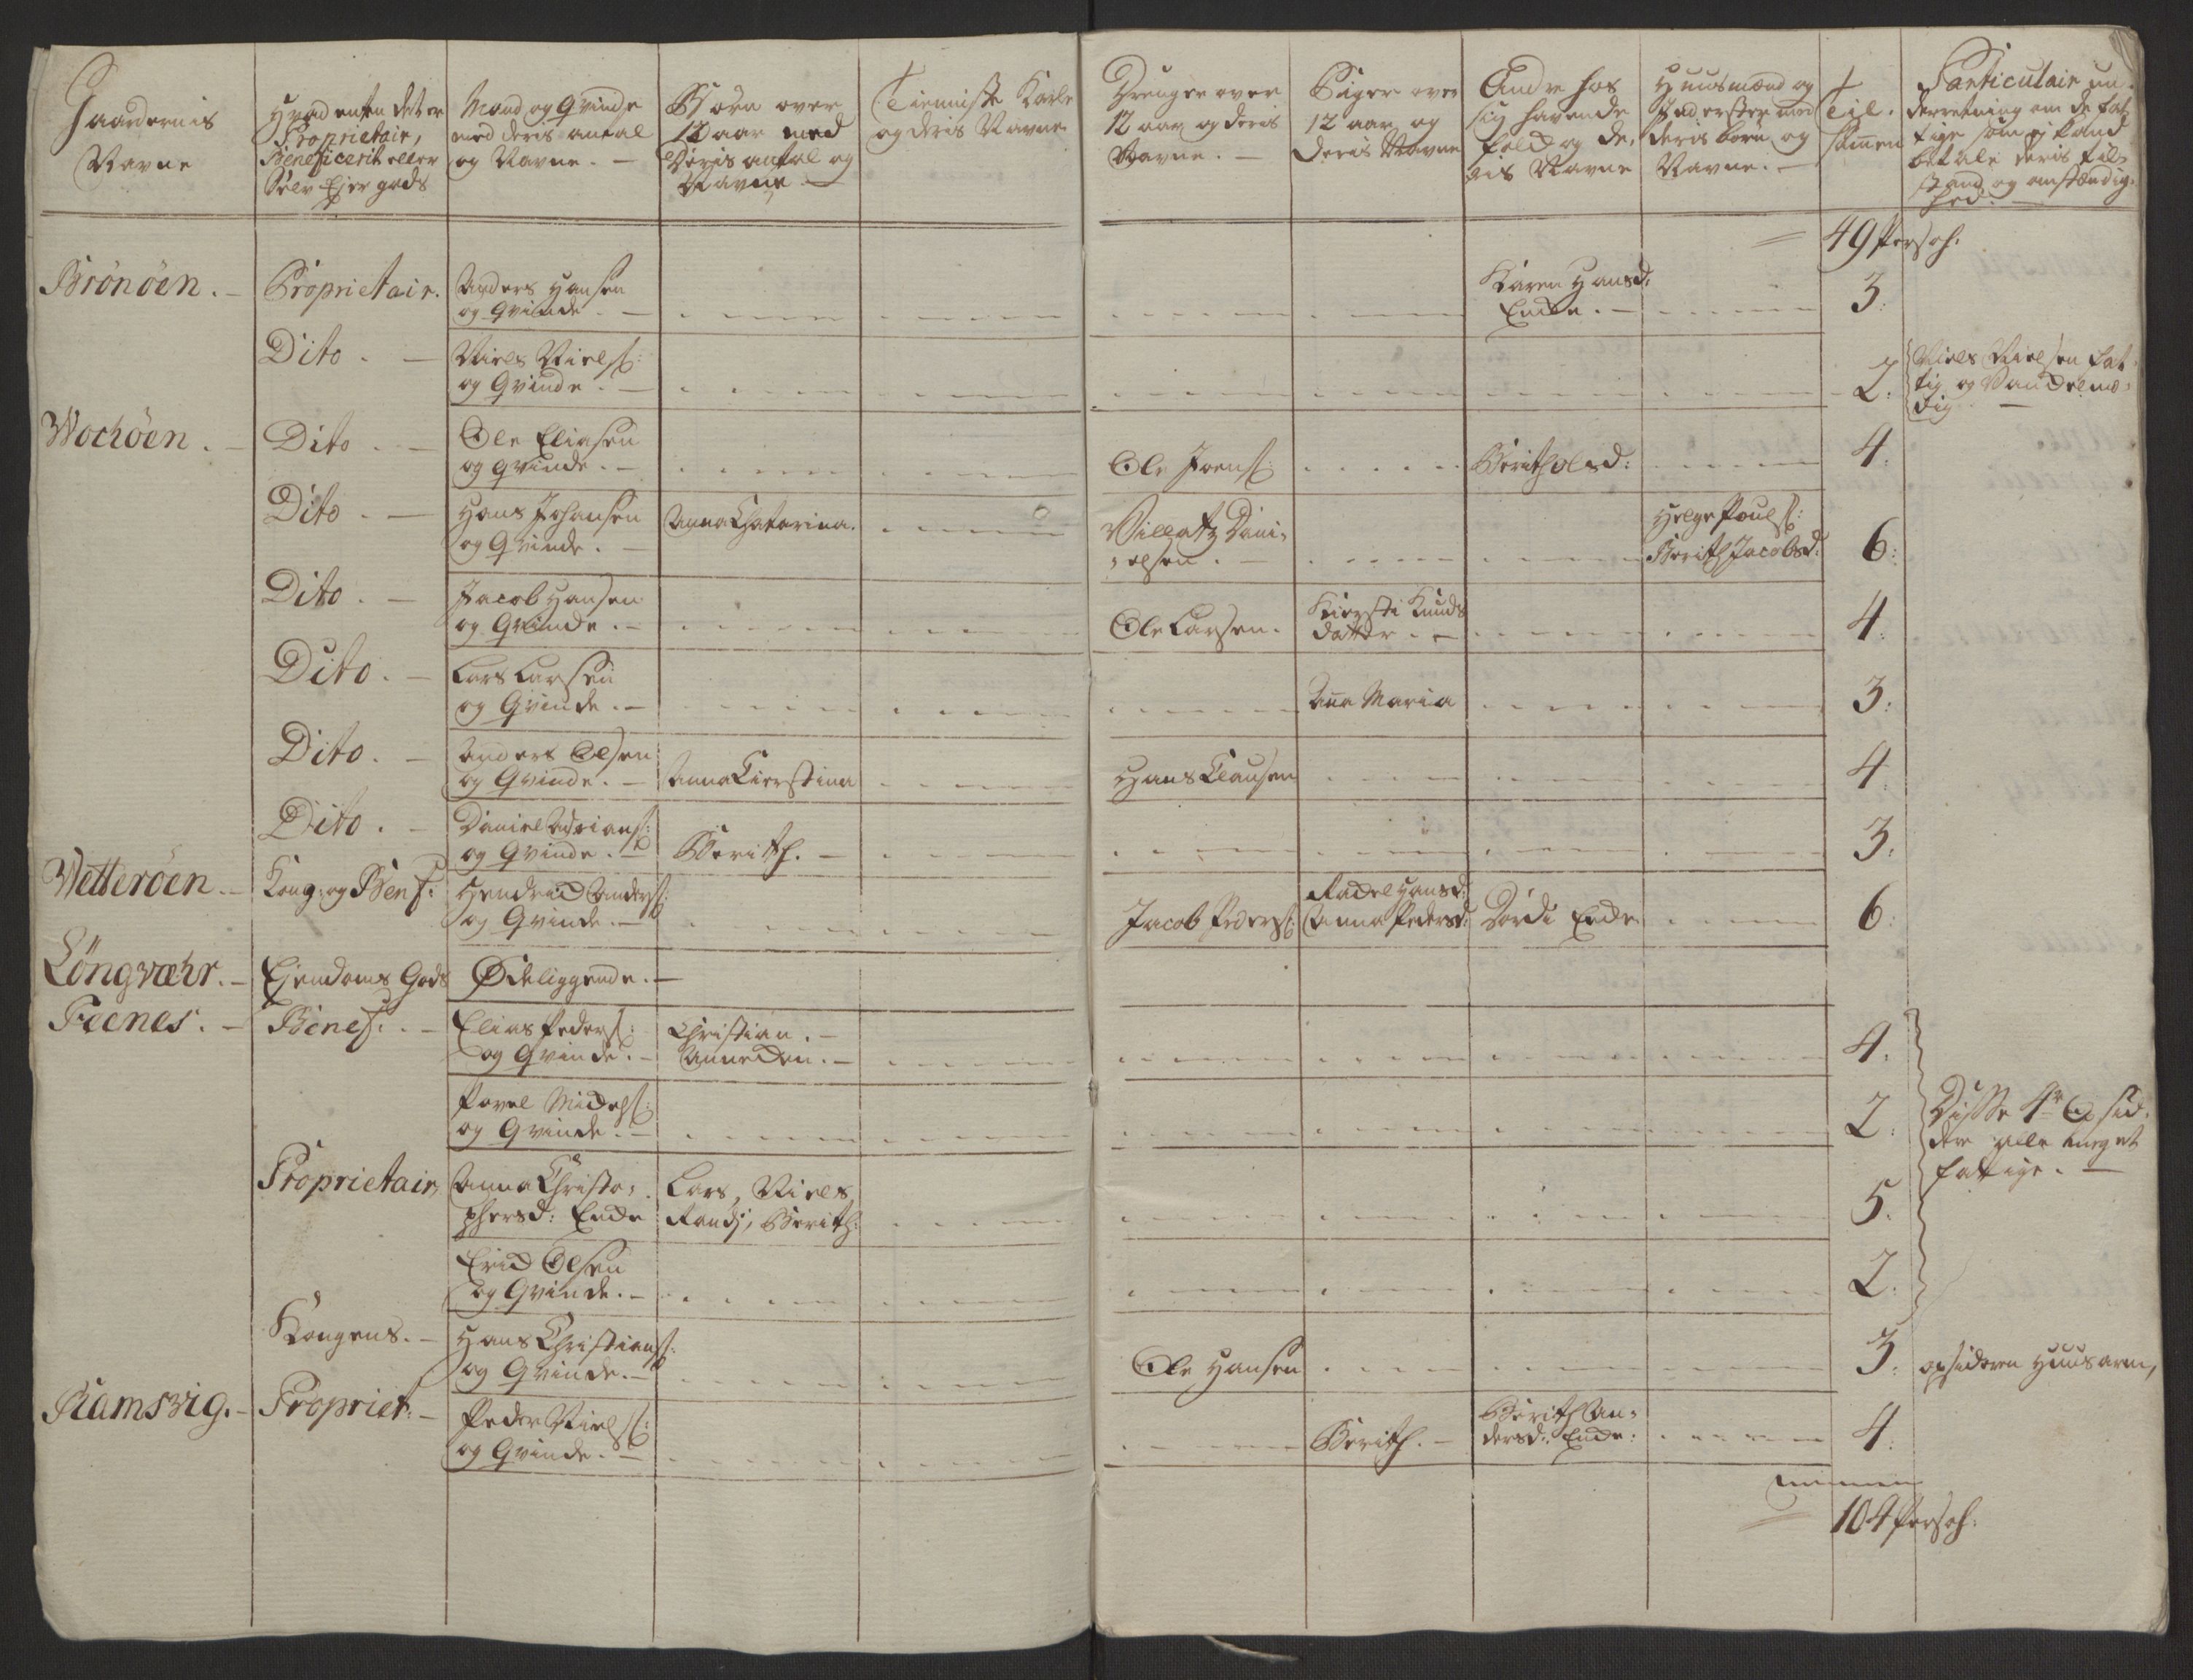 Gaardernis
Navne
Hvad enten det er
Proprietair,
Beneficerit eller
Selv Ejer gods
Mand og Qvinde
med deris antal
og Navne. —
Børn over
12 aar med
deris antal og
Navne —
Tienniste Karle
og deris Navne
Drenger over
12 aar og deris
Navne. —
Piger over
12 aar og
deris Navne
Andre hos
sig havende
folck og de,
ris Navne
Huusmænd og
Inderster med
deris børn og
Navne. —
Til.
Sammen
Particulair un,
derretning om de fat,
tige som ej kand
betale deris til,
stand, og omstændig,
hed. —
49 Persoh:
Brönöen. —
Proprietair.
Anders Hansen
og Qvinde —
Karen Hansd:
Encke. —
3:
Dito. —
Niels Niels:
og Qvinde. —
2:
Niels Nielsen fat,
tig og
Wocköen. —
Dito. —
Ole Eliasen
og Qvinde. —
Ole Joens:
Berith Olsd:
4:
Dito. —
Hans Johansen
og Qvinde. —
Anna Chatarina.
Dani,
elsen. —
Helge Pouls:
Berith Jacobsd:
6:
Dito. —
Jacob Hansen
og Qvinde. —
Ole Larsen.
Kirsti Knuds
datter. —
4:
Dito. —
Lars Larsen
og Qvinde. —
Ana Maria
3:
Dito. —
Anders Olsen
og Qvinde. —
Anna Kierstina
Hans Clausen
4:
Dito. —
Daniel Adrians:
og Qvinde. —
Berith. —
3:
Wetteröen. —
Kong: og Benf:
Hendrick Anders:
og Qvinde. —
Jacob Peders:
Rackel Hansd:
Anna Pedersd:
Dordi Encke
6:
Löngvæhr. —
Ejendoms Gods
Ødeliggende. —
Feenes. —
Benef: —
Elias Peders:
og Qvinde. —
Christian. —
Annecken. —
4:
Povel Mickels:
og Qvinde. —
2:
Disse 4re Opsid,
dere alle meget
fattige. —
Proprietair
Anna Christo,
phersd: Encke
Lars, Niels,
Randj, Berith:
5:
Erick Olsen
og Qvinde. —
2:
Kongens. —
Hans Christians:
og Qvinde. —
Ole Hansen
3:
opsideren Huusarm,
Ramsvig. —
Propriet: —
Peder Niels:
og Qvinde. —
Berith. —
Berith An,
dersd: Encke:
4:
104 Persoh: